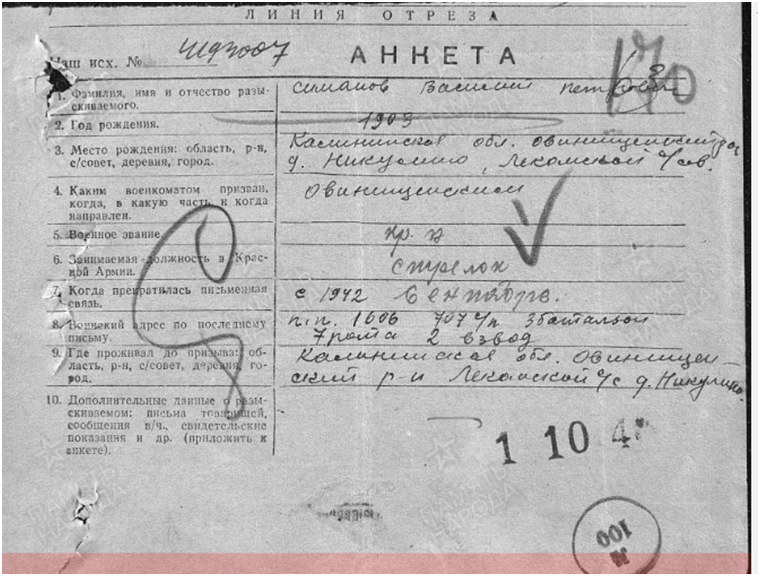 ЛИНИЯ ОТРЕЗА
Наш исх. №
АНКЕТА
170
1. Фамилия, имя и отчество разы-
скиваемого.
Симанов Василий Петрович
2. Год рождения.
1903
3. Место рождения: область, р-н,
с/совет, деревня, город.
Калининская обл. Овинищенский р-он
д. Никулино, Лекомской с/сов.
4. Каким военкоматом призван,
когда, в какую часть и когда
направлен.
Овинищенским
5. Военное звание.
кр-ц
6. Занимаемая должность в Крас-
ной Армии.
стрелок
7. Когда прекратилась письменная
связь.
с 1942 Сентября.
8. Воинский адрес по последнему
письму.
п.п. 1606 707 с/п 3 батальон
7 рота 2 взвод
9. Где проживал до призыва: об-
ласть, р-н, с/совет, деревня, го-
род.
Калининская обл. Овинищен-
ский р-н Лекомской с/с д. Никулино.
10. Дополнительные данные о разы-
скиваемом: письма товарищей,
сообщения в/ч., свидетельские
показания и др. (приложить к
анкете).
1 10
100
ПАМЯТЬ
НАРОДА